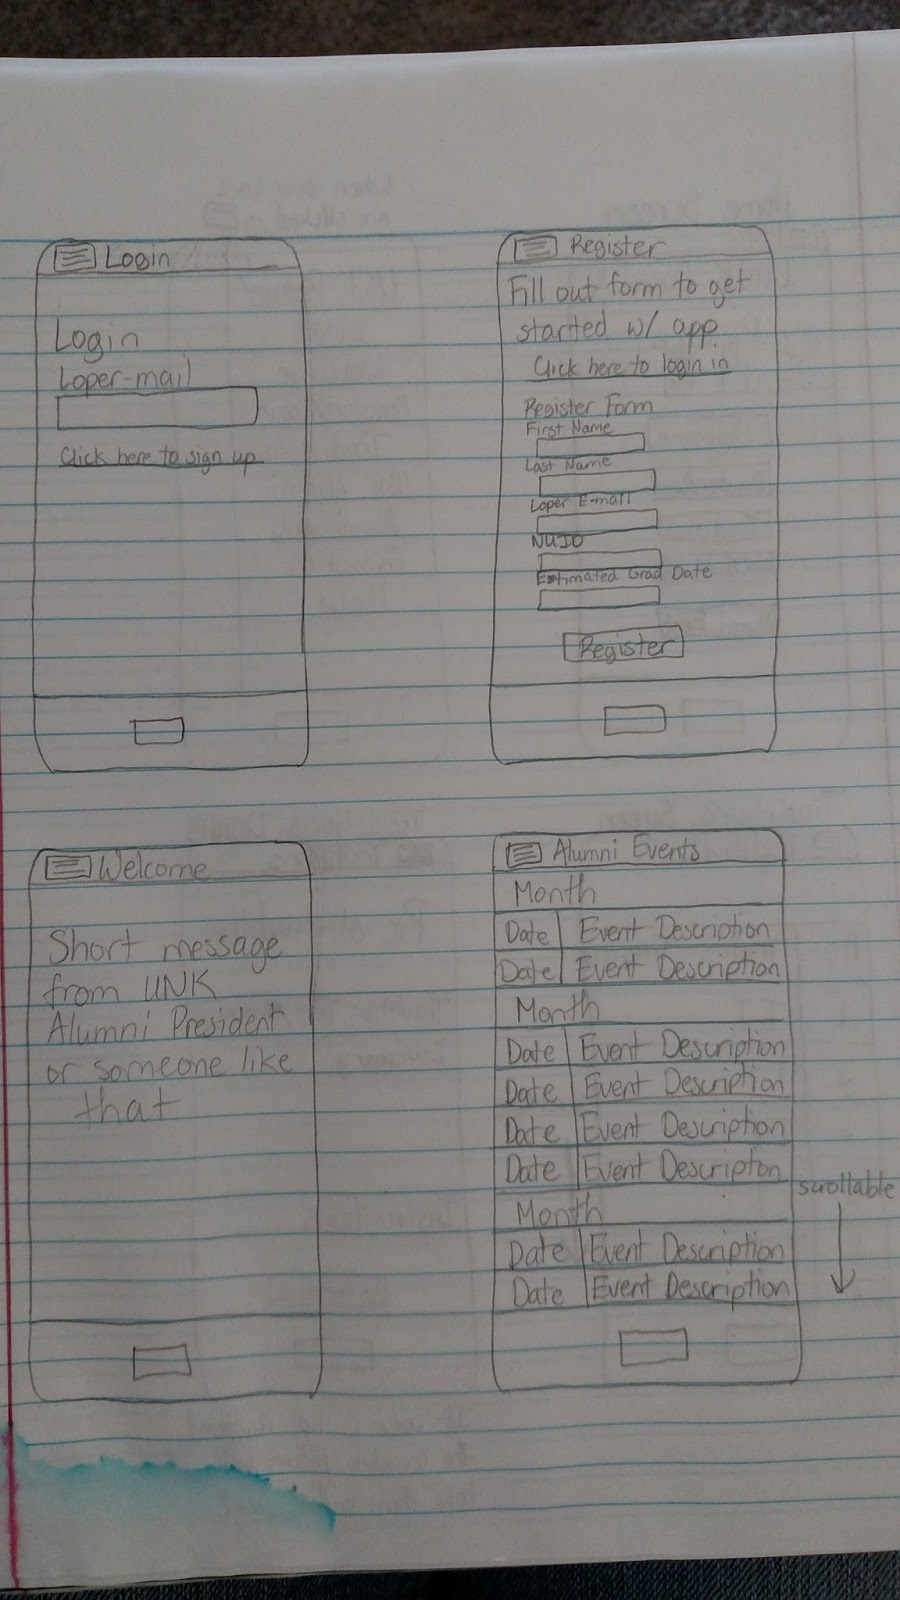 Login
Login
Loper-mail
Click here to sign up
Register
Fill out form to get
started w/ app
Click here to login in
Register Form
First Name
Last Name
Loper E-mail
NUID
Estimated Grad Date
Register
Welcome
Short message
from UNK
Alumni President
or someone like
that
Alumni Events
Month
Date Event Description
Date Event Description
Month
Date Event Description
Date Event Description
Date Event Description
Date Event Description
Month
Date Event Description
Date Event Description
scrollable